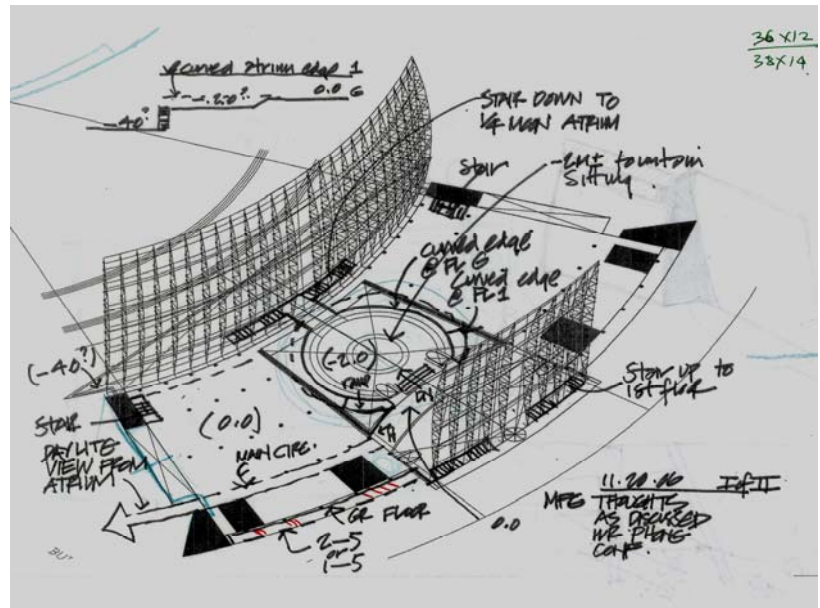 36 X12
38X14
curved atrium edge 1
-.20? 0.0 G
-40?
STAIR DOWN TO
MAIN ATRIUM
Stair
-2M± fountain
Sitting
curved edge
@ FL G
Curved edge
@ FL 1
(-40?)
(-2.0)
ramp
DN
Stair up to
1st floor
STAIR
(0.0)
DAYLITE
VIEW FROM
ATRIUM
MAIN CIRC.
GR FLOOR
2-5
or
1-5
0.0
11.20.06 I of II
THOUGHTS
AS DISCUSSED
PHONE
CONF.